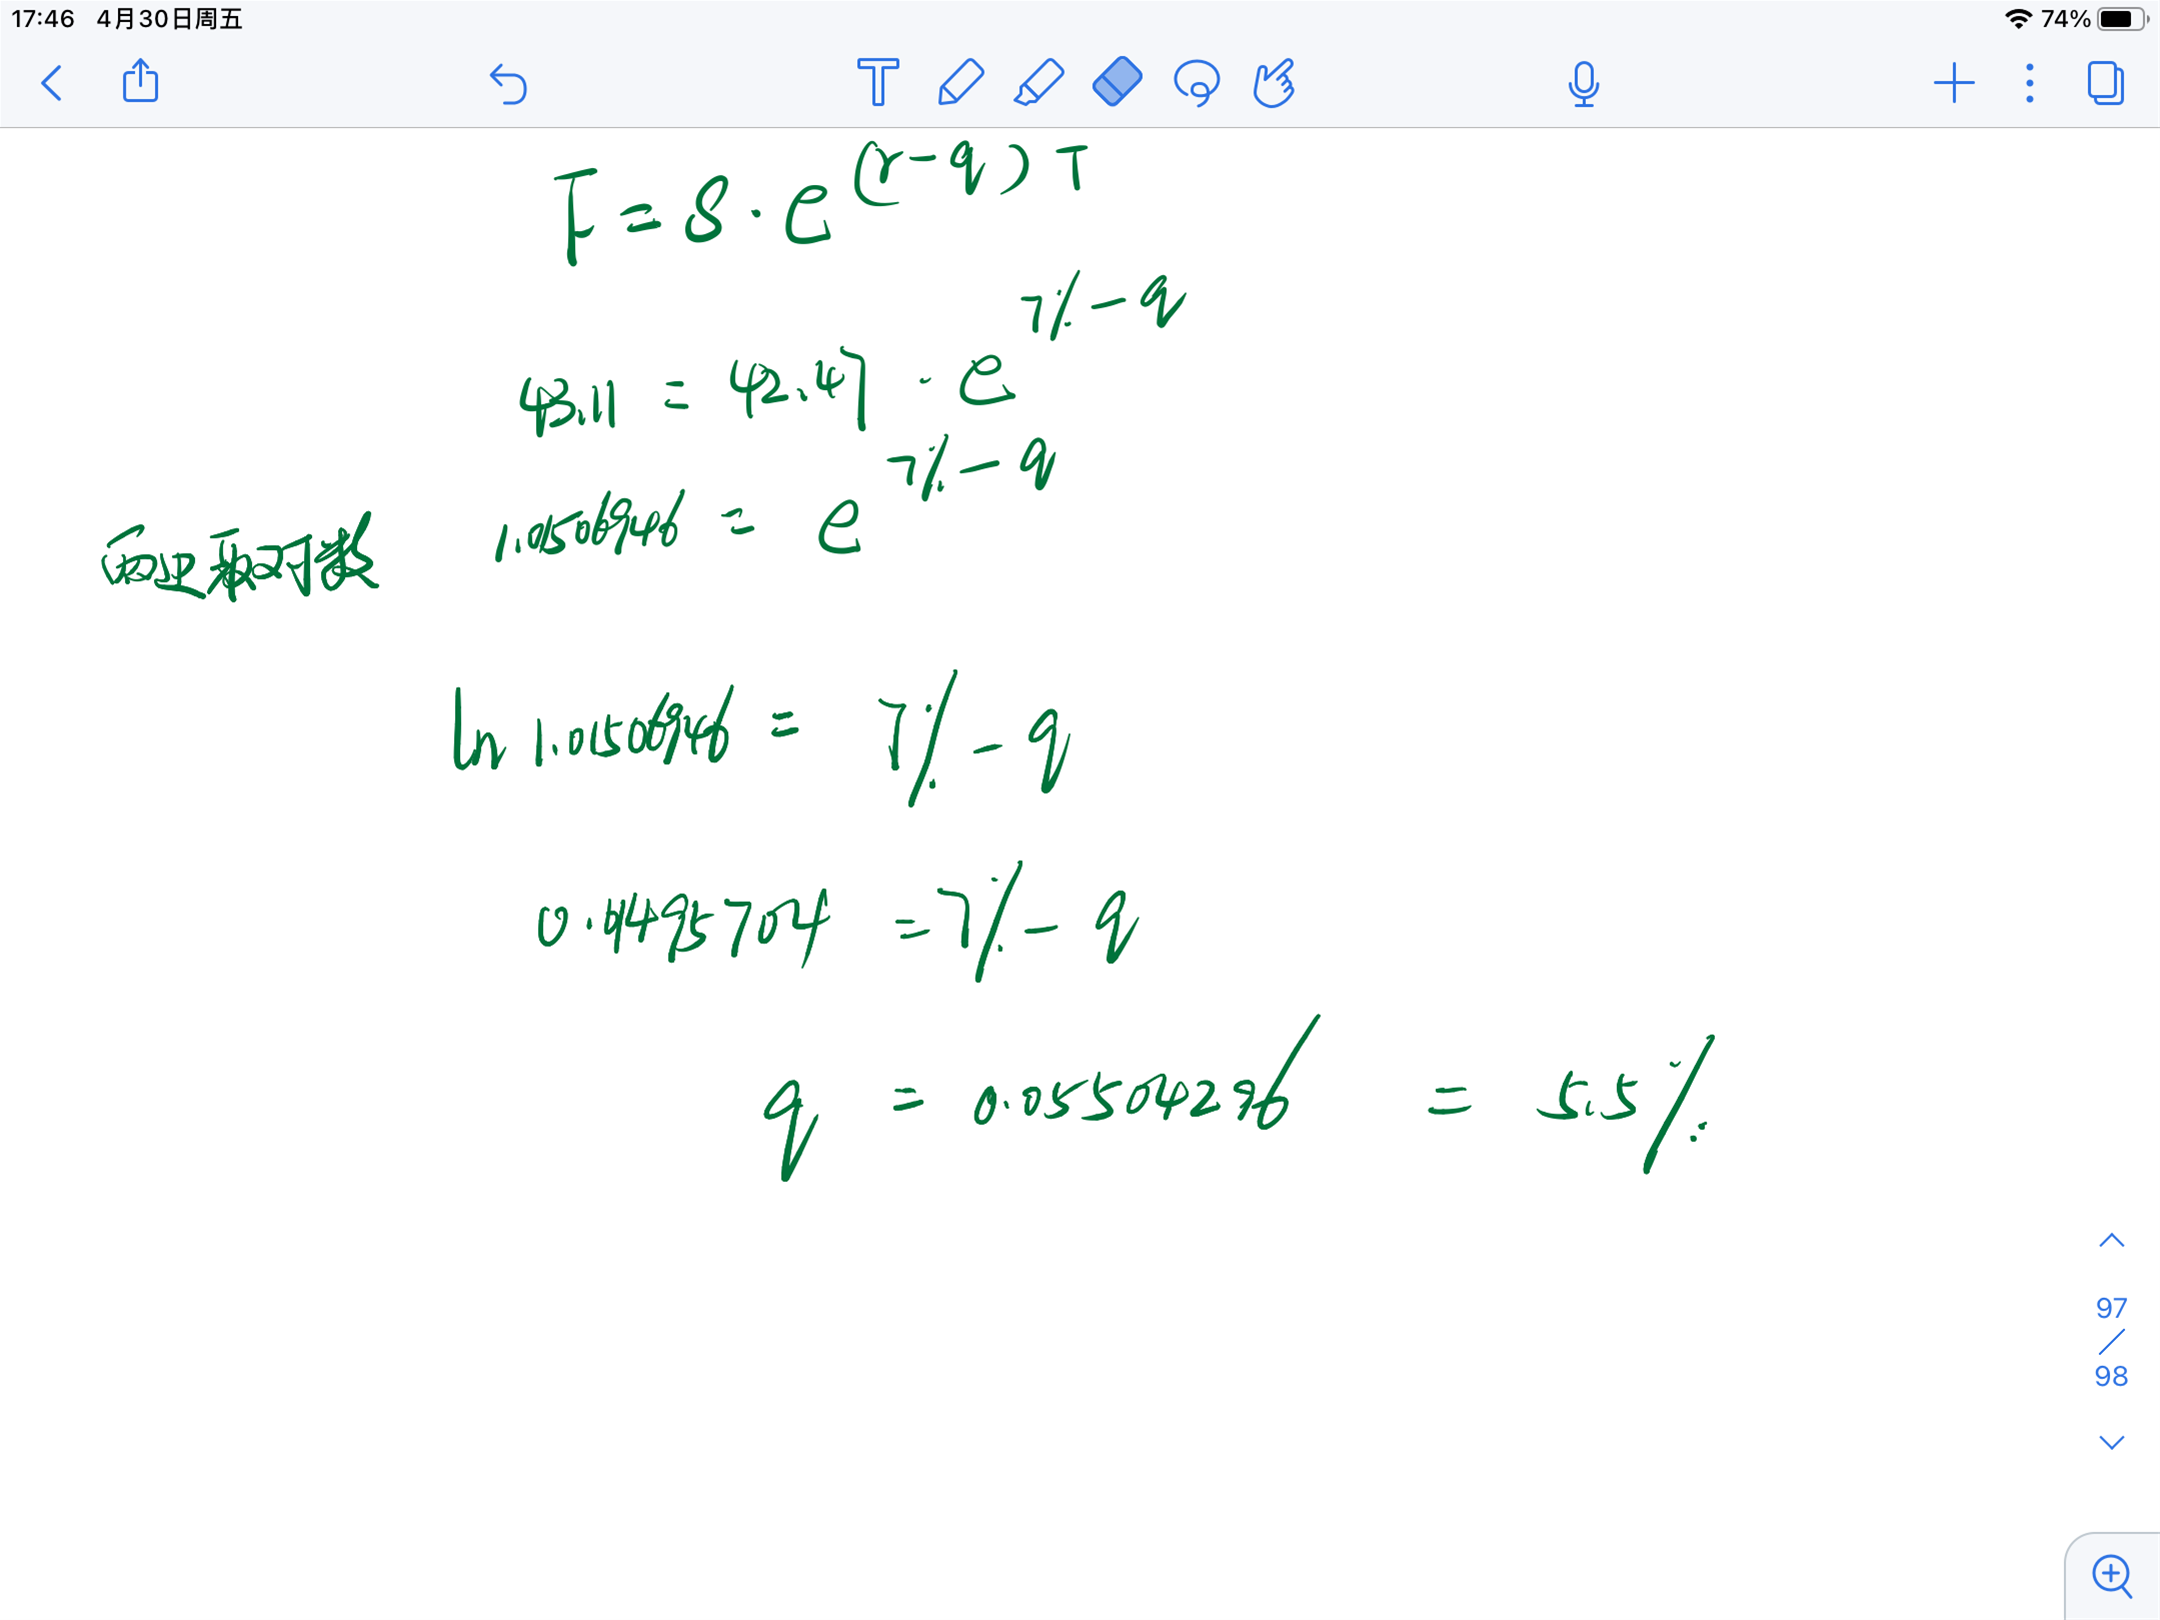 17:46 4月30日周五 74%
T
F = S · e^(r-q)T
43.11 = 42.47 · e^7%-q
1.01506946 = e^7%-q
两边取对数
ln 1.01506946 = 7% - q
0.01495704 = 7% - q
q = 0.05504296 = 5.5%
97
/
98